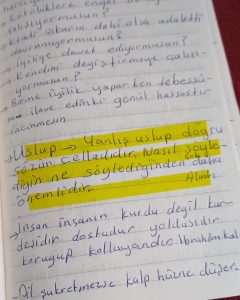 engel o
Kötülüklere
alıyormusun?
→ kendi çıkarın dahi olsa adaletli
davranıyormusun?
→ iyiliğe davet ediyormusun?
→ kendini değiştirmeye çalışı-
yormusun?
→ Birine iyilik yaparken tebessü-
mü ilave ediniz ki gönül hassastır
incinmesin.
→ Uslup → Yanlış uslup doğru
sözün celladıdır. Nasıl söyle-
diğin ne söylediğinden daha
önemlidir. Alıntı
→ İnsan insanın kurdu değil kar-
deşidir dostudur yoldaşıdır
koruyup kollayandır İbrahim Kal
→ Dil şükretmezse kalp hüzne düşer